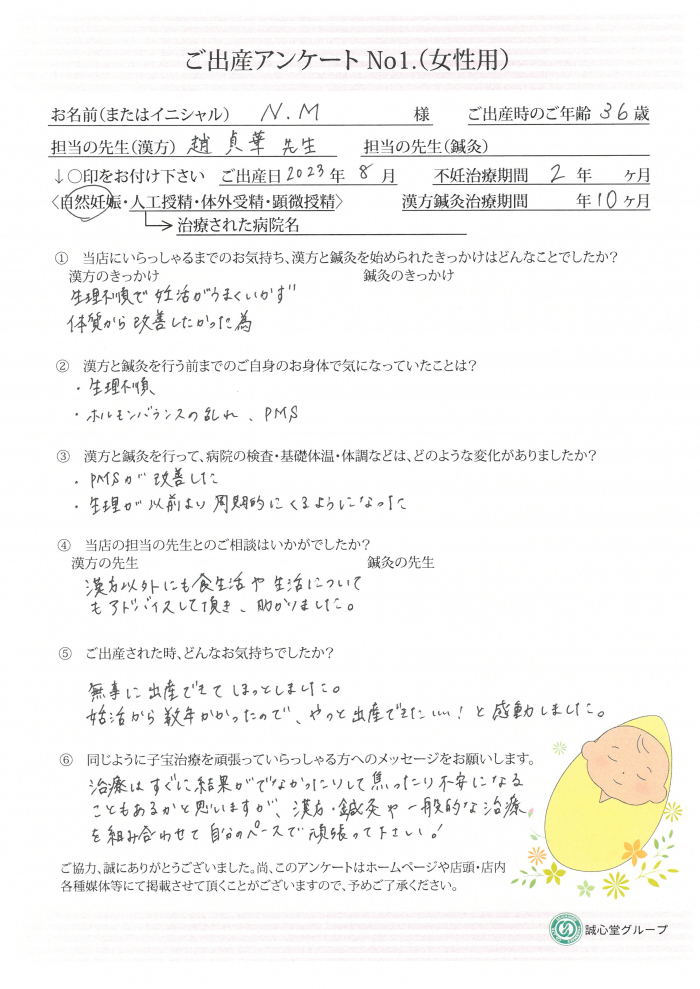 ご出産アンケート No1.(女性用)
お名前(またはイニシャル) N.M 様 ご出産時のご年齢 36 歳
担当の先生(漢方) 趙 貞華 先生 担当の先生(鍼灸)
↓○印をお付け下さい ご出産日 2023 年 8 月 不妊治療期間 2 年 ヶ月
〈自然妊娠・人工授精・体外受精・顕微授精〉 漢方鍼灸治療期間 年 10 ヶ月
治療された病院名
① 当店にいらっしゃるまでのお気持ち、漢方と鍼灸を始められたきっかけはどんなことでしたか?
漢方のきっかけ 鍼灸のきっかけ
生理不順で妊活がうまくいかず
体質から改善したかった為
② 漢方と鍼灸を行う前までのご自身のお身体で気になっていたことは?
・生理不順
・ホルモンバランスの乱れ、PMS
③ 漢方と鍼灸を行って、病院の検査・基礎体温・体調などは、どのような変化がありましたか?
・PMSが改善した
・生理が以前より周期的にくるようになった
④ 当店の担当の先生とのご相談はいかがでしたか?
漢方の先生 鍼灸の先生
漢方以外にも食生活や生活について
もアドバイスして頂き、助かりました。
⑤ ご出産された時、どんなお気持ちでしたか?
無事に出産できてほっとしました。
妊活から数年かかったので、やっと出産できた…!と感動しました。
⑥ 同じように子宝治療を頑張っていらっしゃる方へのメッセージをお願いします。
治療はすぐに結果がでなかったりして焦ったり不安になる
こともあるかと思いますが、漢方・鍼灸や一般的な治療
を組み合わせて自分のペースで頑張って下さい!
ご協力、誠にありがとうございました。尚、このアンケートはホームページや店頭・店内
各種媒体等にて掲載させて頂くことがございますので、予めご了承ください。
誠心堂グループ